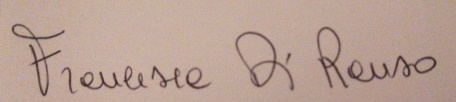 Francesca Di Renso